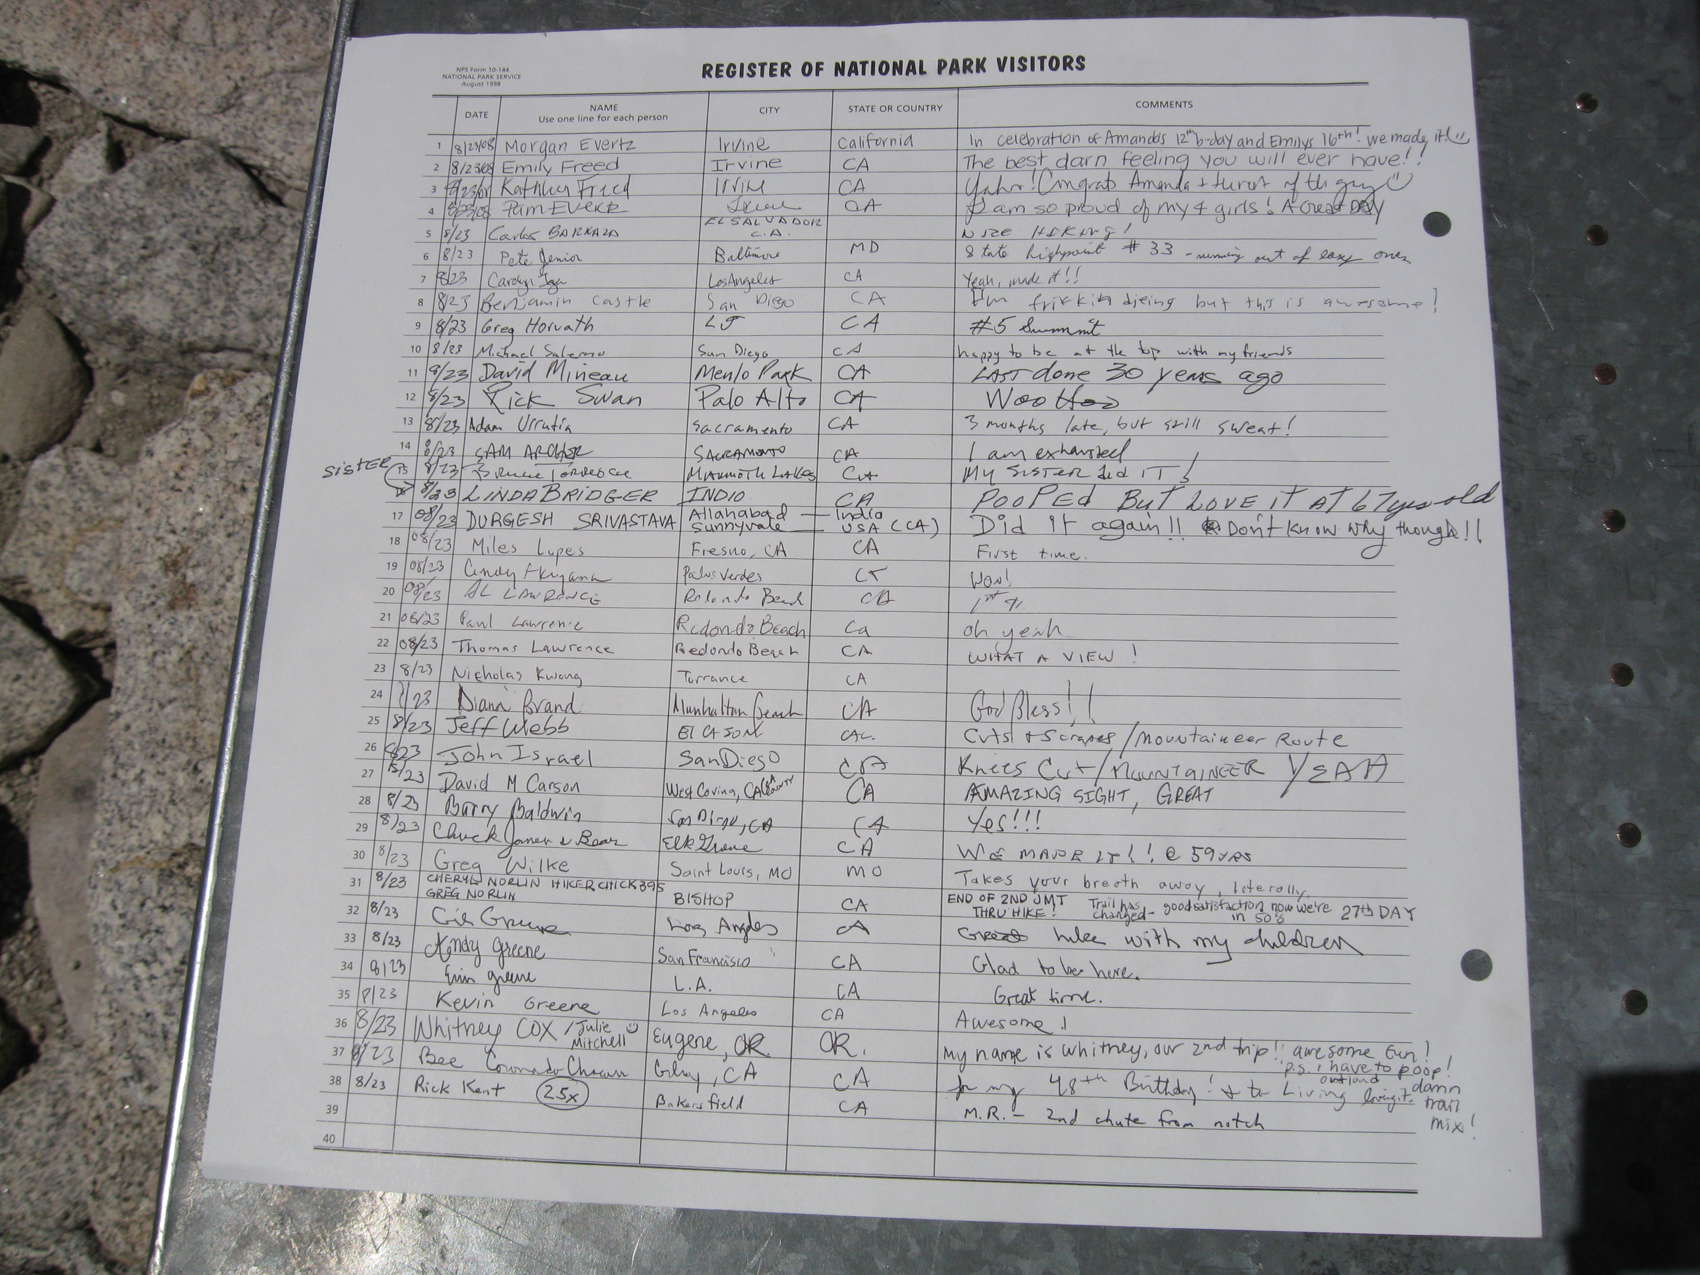 NPS Form 10-144
NATIONAL PARK SERVICE
August 1998
REGISTER OF NATIONAL PARK VISITORS
DATE NAME CITY STATE OR COUNTRY COMMENTS
Use one line for each person
1 8/23/08 Morgan Evertz Irvine California In celebration of Amanda's 12th b-day and Emilys 16th! we made it!
2 8/23/08 Emily Freed Irvine CA The best darn feeling you will ever have!!
3 8/23/08 Freed Irvine CA Congrats Amanda + the rest of the
4 8/23/08 Pam Evertz Irvine CA I am so proud of my 4 girls! A Great DAY
5 8/23 Carlos EL SALVADOR C.A. NICE HIKING!
6 8/23 Pete Baltimore MD State highpoint #33 - running out of easy ones
7 8/23 Carolyn Los Angeles CA Yeah, made it!!
8 8/23 Benjamin Castle San Diego CA I'm frikkin dieing but this is awesome!
9 8/23 Greg Horvath LJ CA #5 Summit
10 8/23 Michael Salerno San Diego CA happy to be at the top with my friends
11 8/23 David Mineau Menlo Park CA LAST done 30 years ago
12 8/23 Rick Swan Palo Alto CA Woo Hoo
13 8/23 Adam Urrutia Sacramento CA 3 months late, but still sweat!
14 8/23 SAM ARCHER SACRAMENTO CA I am exhausted
SISTER 15 8/23 MAMMOTH LAKES CA MY SISTER did IT!
16 8/23 LINDA BRIDGER INDIO CA POOPED BUT LOVE IT AT 67 yrs old
17 08/23 DURGESH SRIVASTAVA Allahabad — India Did it again!! Don't know why though!!
Sunnyvale — USA (CA)
18 08/23 Miles Lupes Fresno, CA CA First time.
19 08/23 Cindy Palos Verdes CA Wow!
20 08/23 AL LAWRENCE Redondo Beach CA 1st
21 08/23 Paul Lawrence Redondo Beach Ca oh yeah
22 08/23 Thomas Lawrence Redondo Beach CA WHAT A VIEW!
23 8/23 Nicholas Kwong Torrance CA
24 8/23 Diana Brand Manhattan Beach CA God Bless!!
25 8/23 Jeff Webb El CAJON CAL. Cuts + Scrapes / Mountaineer Route
26 8/23 John Israel San Diego CA Knees Cut / MOUNTAINEER YEAH
27 8/23 David M Carson West Covina, CA CA AMAZING SIGHT, GREAT
28 8/23 Barry Baldwin San Diego, CA CA Yes!!!
29 8/23 Chuck Elk Grove CA WE MADE IT!! @ 59 YRS
30 8/23 Greg Wilke Saint Louis, MO MO Takes your breath away, literally
31 8/23 CHERYL NORLIN HIKERCHICK395 BISHOP CA END OF 2ND JMT THRU HIKE! Trail has changed - good satisfaction now we're in 50's 27th DAY
GREG NORLIN
32 8/23 Los Angeles CA Great hike with my children
33 8/23 Andy Greene San Francisco CA Glad to be here.
34 8/23 Erin greene L.A. CA Great time.
35 8/23 Kevin Greene Los Angeles CA Awesome!
36 8/23 Whitney COX / Julie Mitchell Eugene, OR OR. My name is whitney, our 2nd trip!! awesome fun!
p.s. i have to poop!
37 8/23 Bee Gilroy, CA CA for my 48th Birthday! & to Living
damn trail mix!
38 8/23 Rick Kent 25x Bakersfield CA M.R. - 2nd chute from notch
39
40